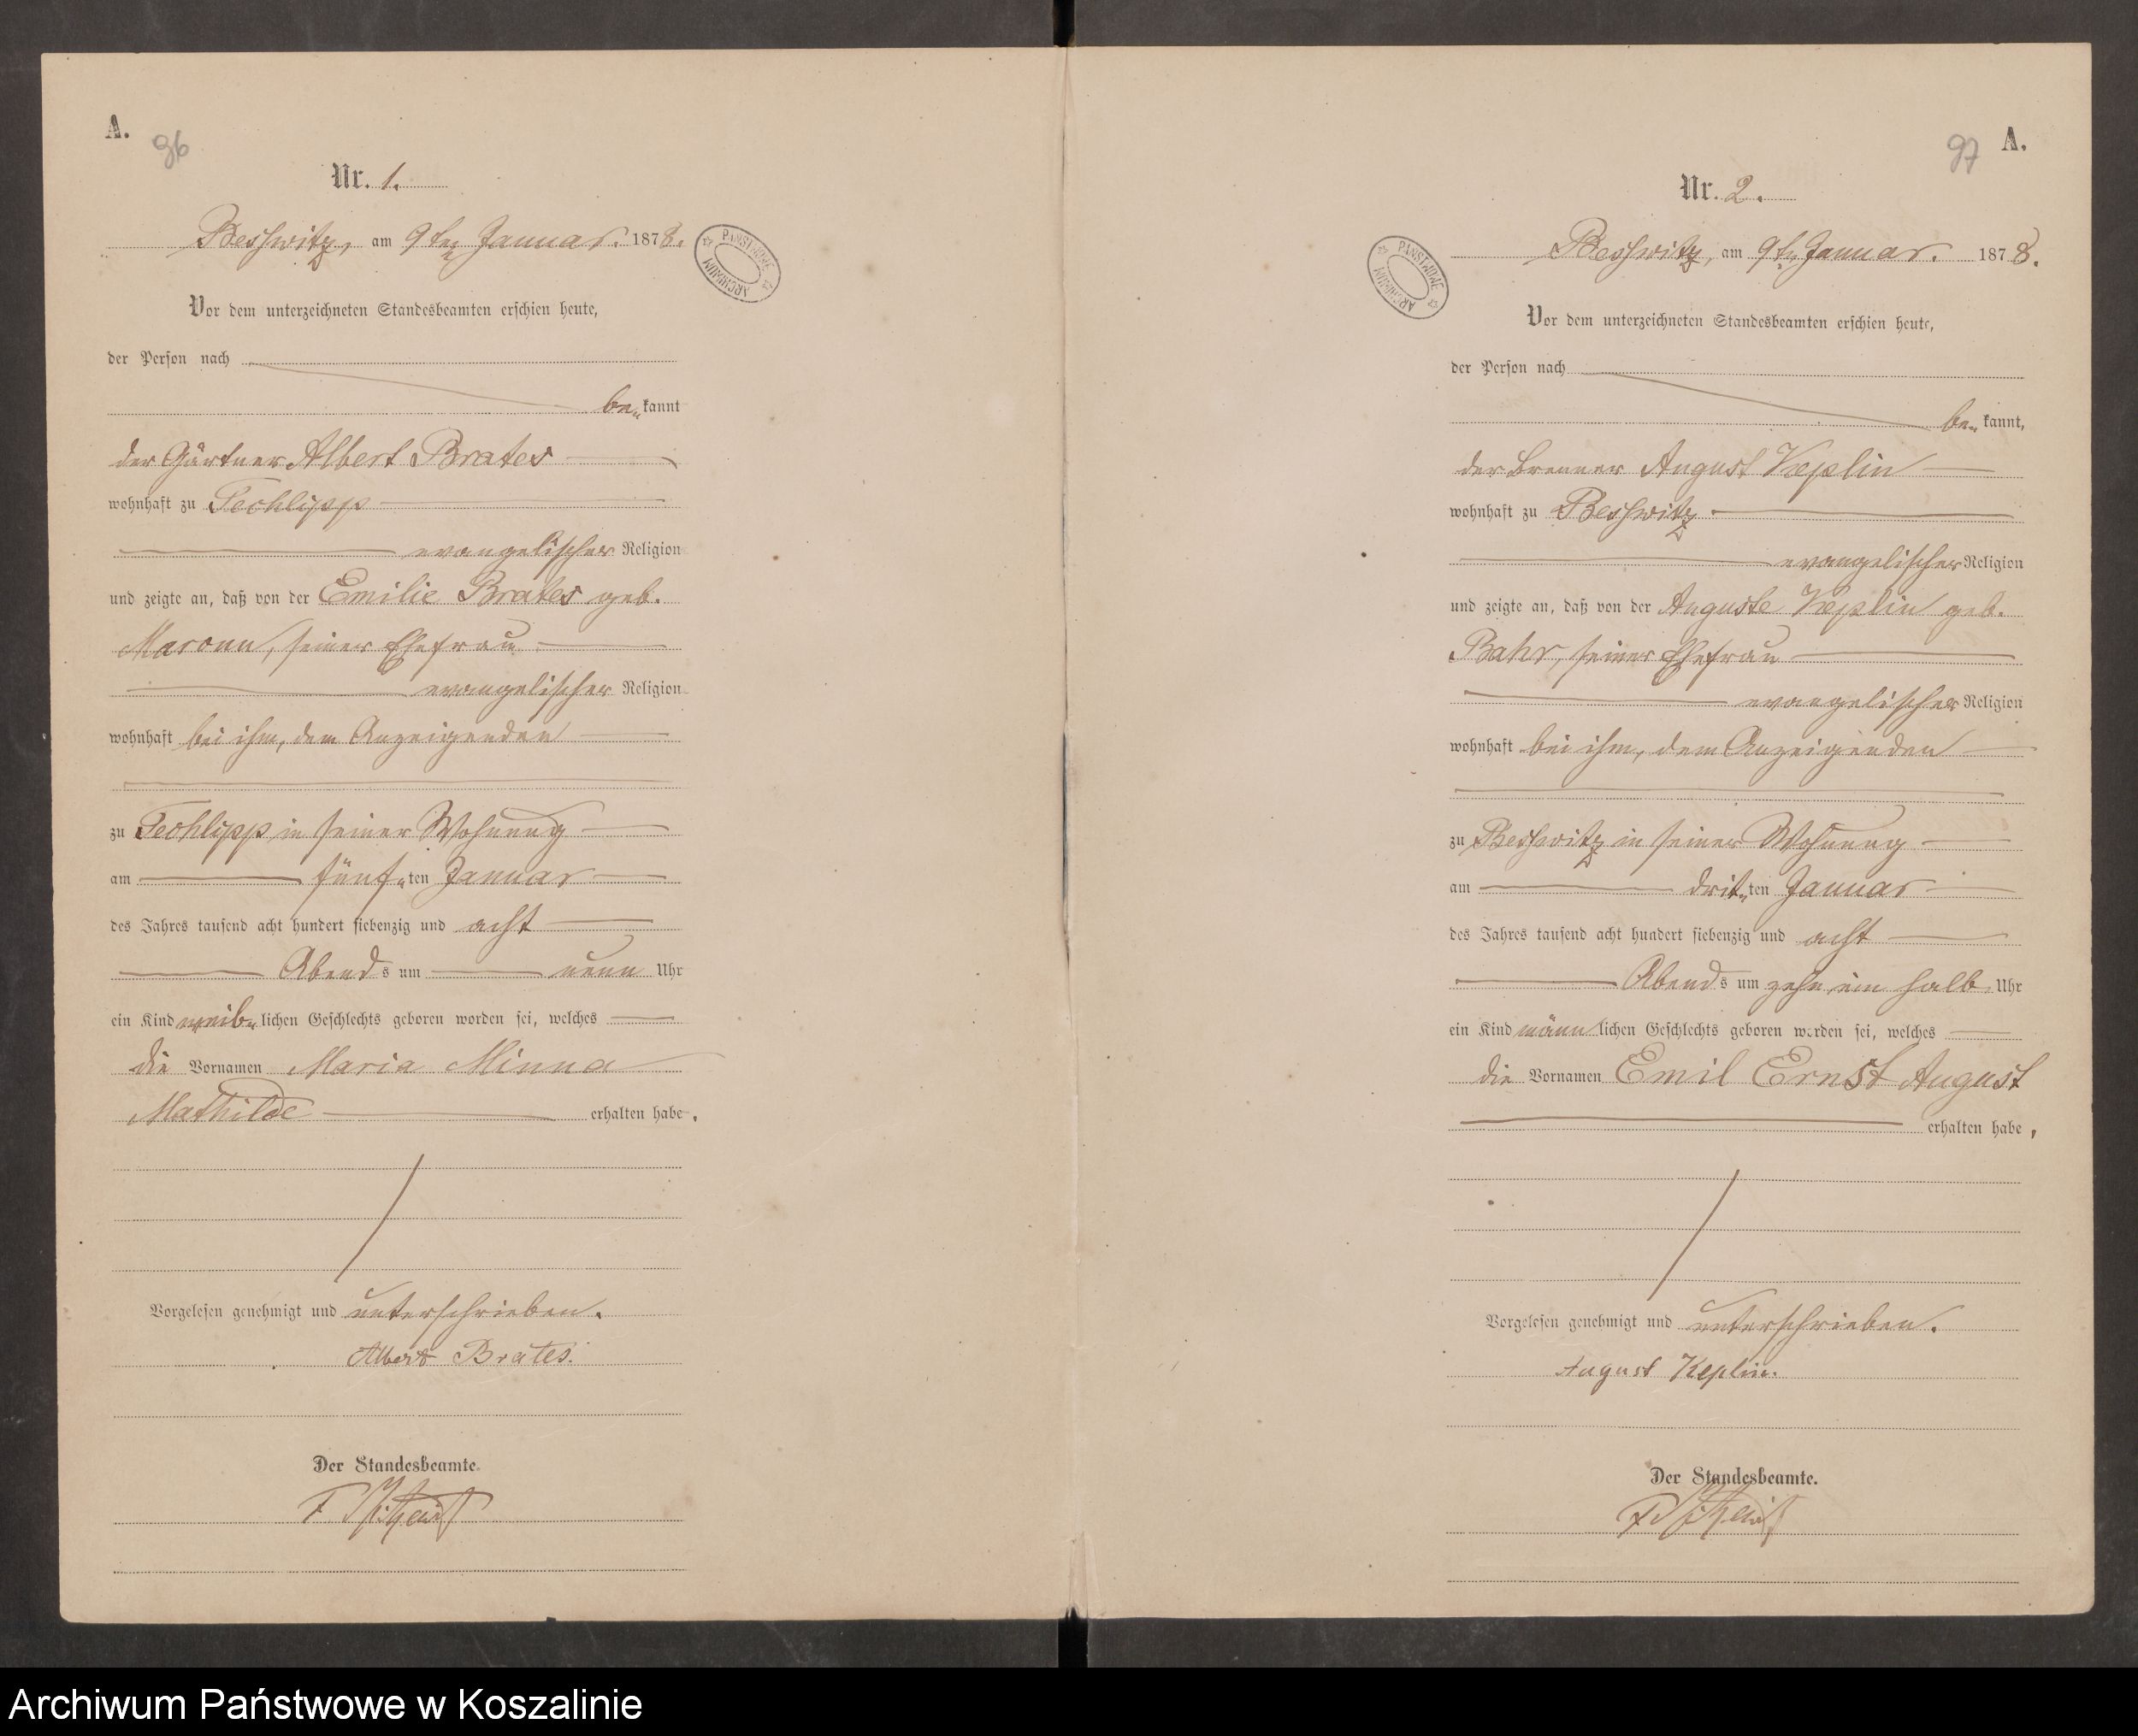 A.
96
Nr. 1.
Besswitz, am 9ten Januar. 1878.
PAŃSTWOWE ARCHIWUM
Vor dem unterzeichneten Standesbeamten erschien heute,
der Person nach
be„ kannt
der Gärtner Albert Brates
wohnhaft zu Techlipp
evangelischer Religion
und zeigte an, daß von der Emilie Brates geb.
Maronn, seiner Ehefrau
evangelischer Religion
wohnhaft bei ihm, dem Anzeigenden
zu Techlipp in seiner Wohnung
am fünf„ten Januar
des Jahres tausend acht hundert siebenzig und acht
Abends um neun Uhr
ein Kind weib„lichen Geschlechts geboren worden sei, welches
die Vornamen Maria Minna
Mathilde erhalten habe.
Vorgelesen genehmigt und unterschrieben.
Albert Brates.
Der Standesbeamte.
97
A.
Nr. 2.
Besswitz, am 9ten Januar. 1878.
PAŃSTWOWE ARCHIWUM
Vor dem unterzeichneten Standesbeamten erschien heute,
der Person nach
be„ kannt,
der Brenner August Keplin
wohnhaft zu Besswitz
evangelischer Religion
und zeigte an, daß von der Auguste Keplin geb.
Bahr, seiner Ehefrau
evangelischer Religion
wohnhaft bei ihm, dem Anzeigenden
zu Besswitz in seiner Wohnung
am drit„ten Januar
des Jahres tausend acht hundert siebenzig und acht
Abends um zehn ein halb Uhr
ein Kind männlichen Geschlechts geboren worden sei, welches
die Vornamen Emil Ernst August
erhalten habe,
Vorgelesen genehmigt und unterschrieben.
August Keplin.
Der Standesbeamte.
Archiwum Państwowe w Koszalinie